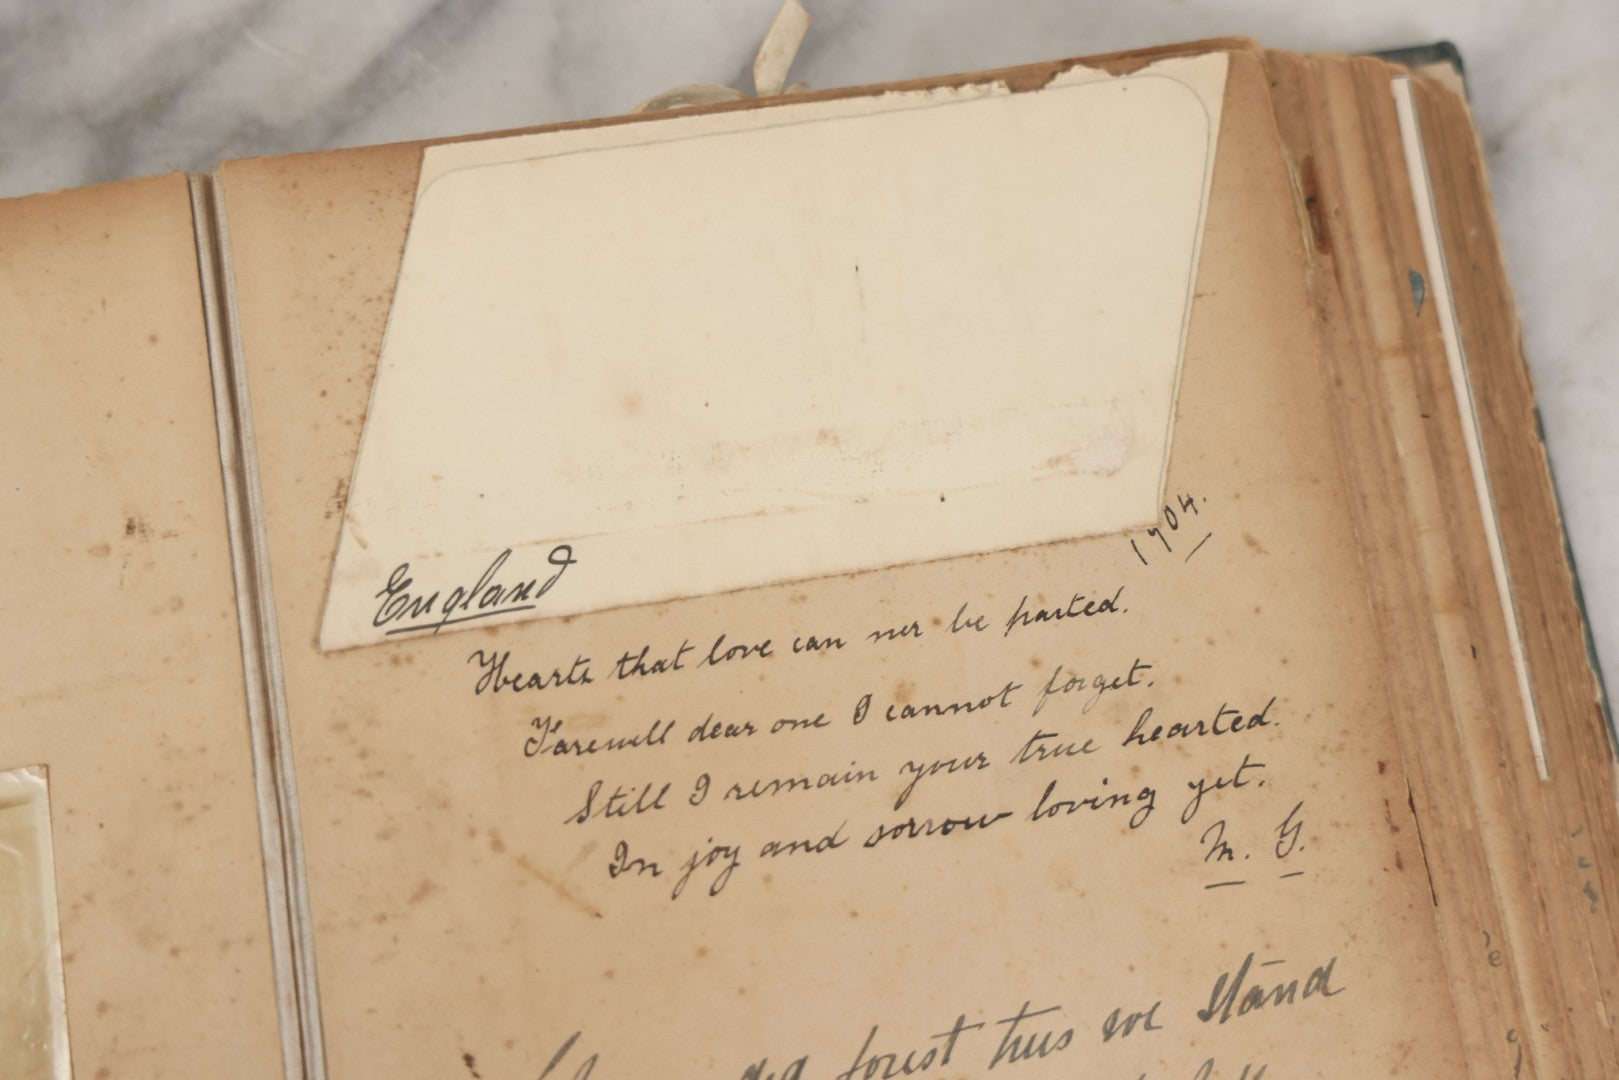 England
1904.
Hearts that love can ner be parted.
Farewell dear one I cannot forget.
Still I remain your true hearted.
In joy and sorrow loving yet.
M. G.
forest trees we stand